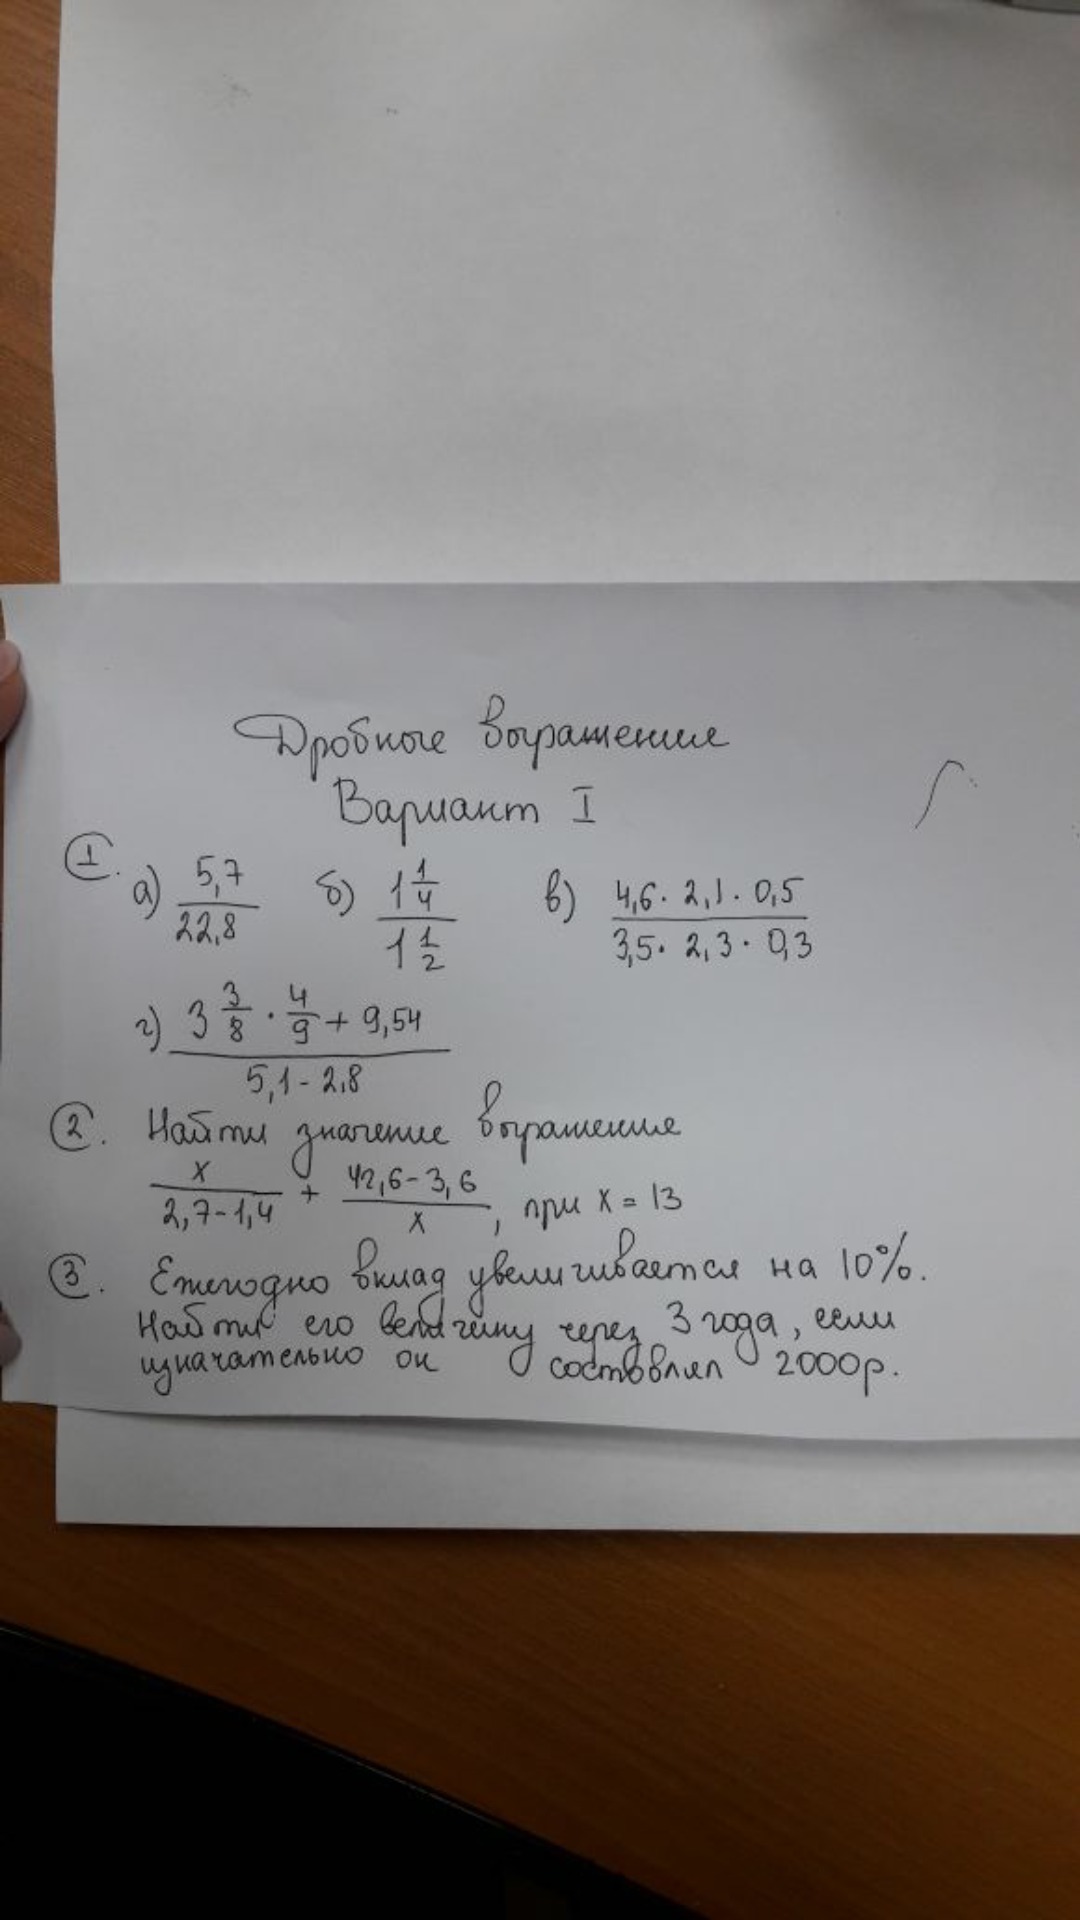 Дробные выражения
Вариант I
1. а) 5,7/22,8 б) 1 1/4 / 1 1/2 в) 4,6 · 2,1 · 0,5 / 3,5 · 2,3 · 0,3
г) 3 3/8 · 4/9 + 9,54 / 5,1 - 2,8
2. Найти значение выражения
x / 2,7-1,4 + 42,6-3,6 / x, при x = 13
3. Ежегодно вклад увеличивается на 10%.
Найти его величину через 3 года, если
изначательно он составлял 2000р.